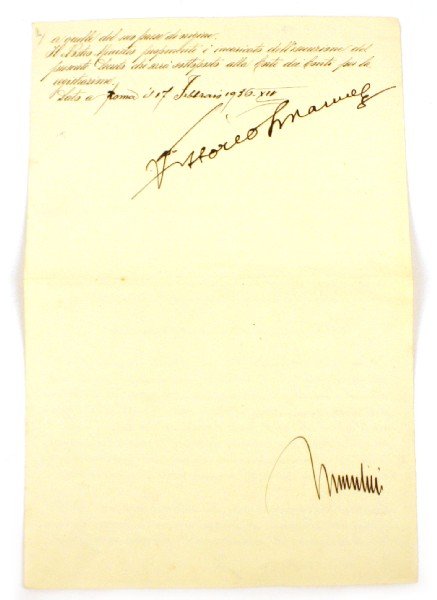 a quelle del suo paese di origine.
Il Nostro Ministro proponente è incaricato dell'esecuzione del
presente Decreto che sarà alla Corte dei Conti per la
registrazione.
Dato a Roma il 17 Febbraio 1936 XIV
Vittorio Emanuele
Mussolini